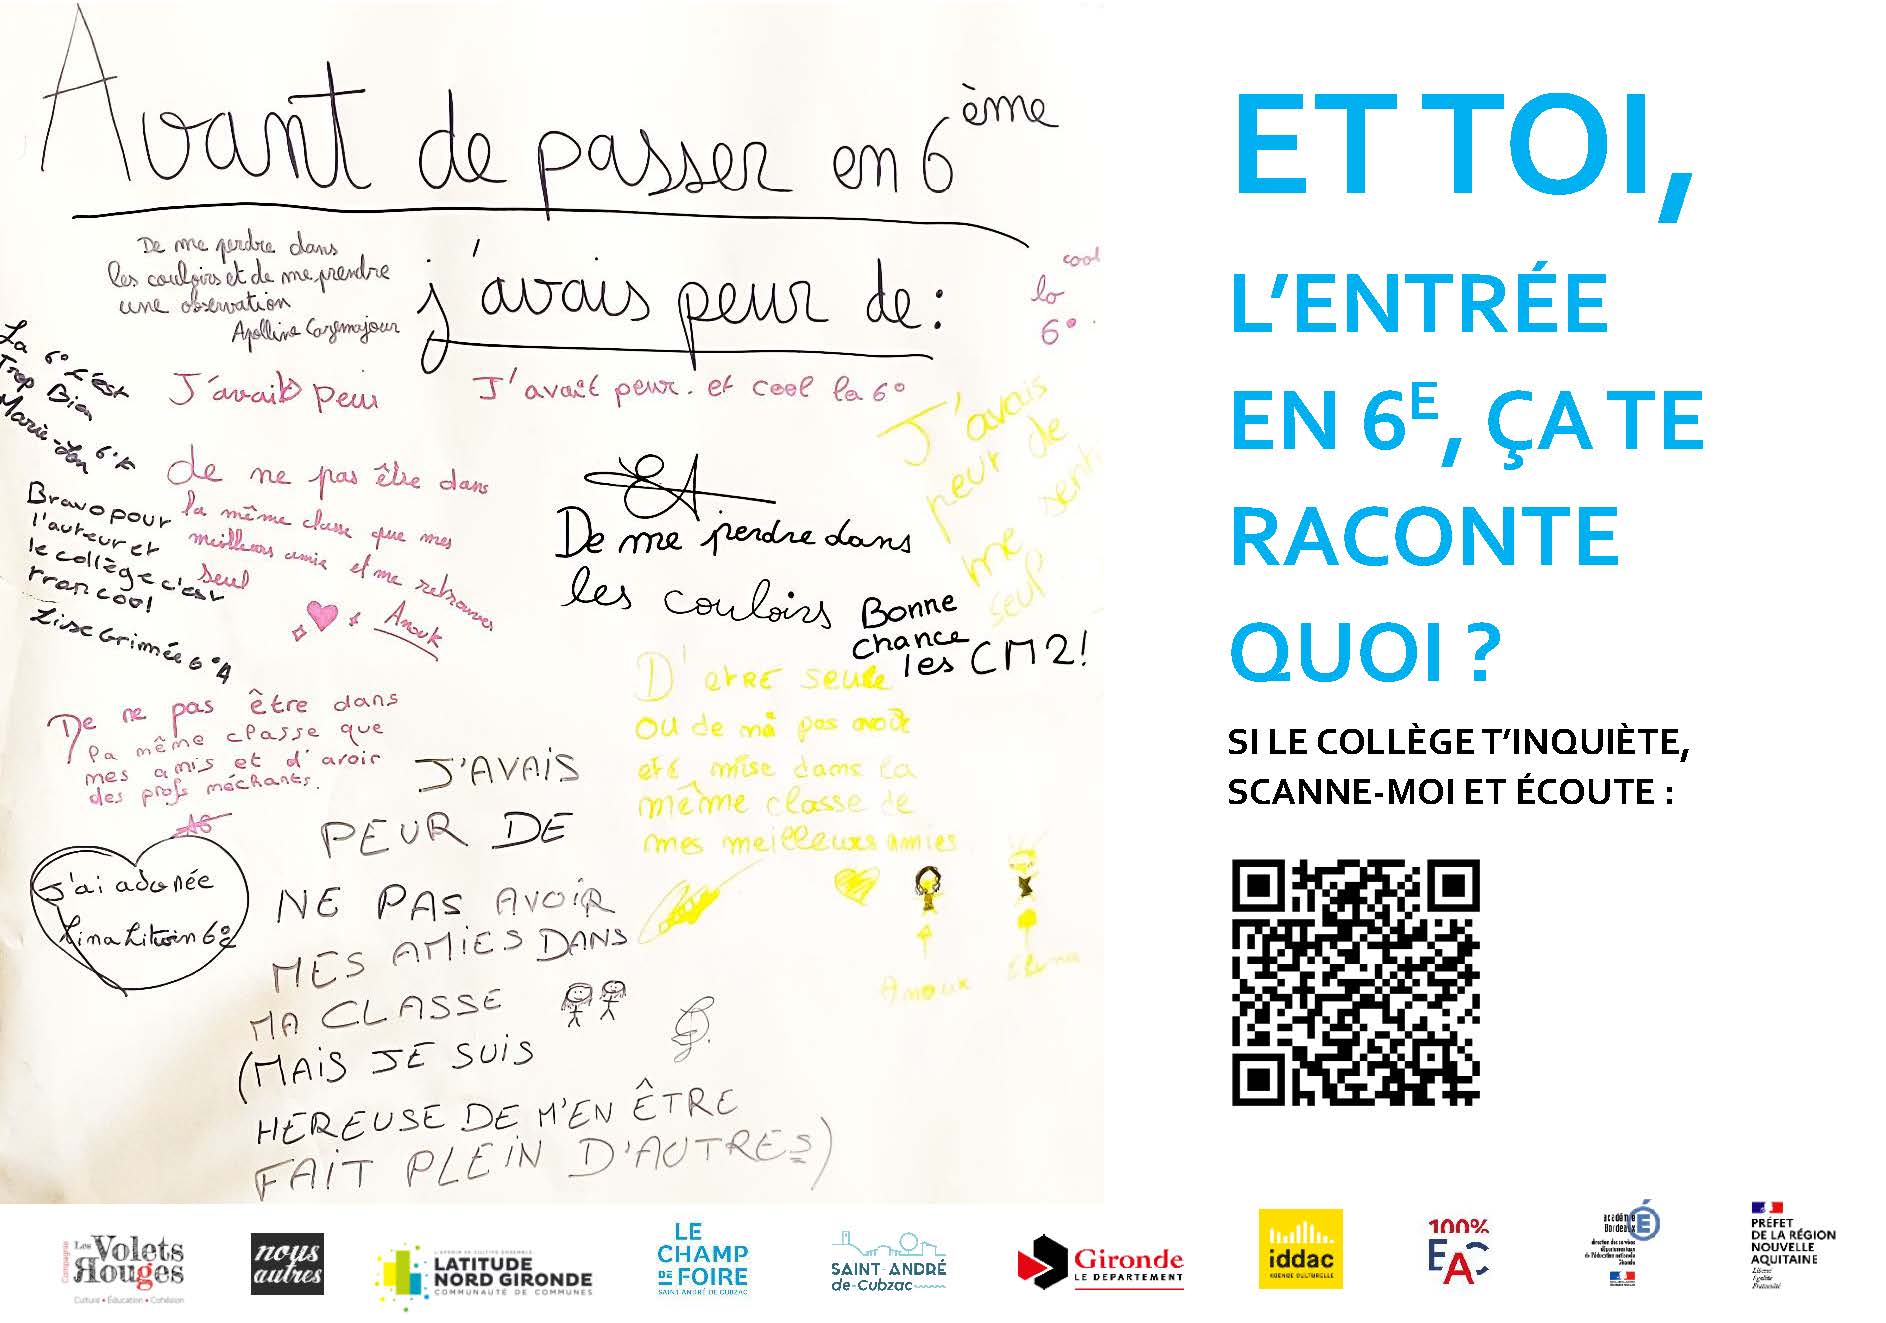 Avant de passer en 6ème
j'avais peur de :
De me perdre dans
les couloirs et de me prendre
une observation
Apolline
cool
la
6°
La 6° c'est
Trop Bien
J'avait peur
J'avait peur. et cool la 6°
J'avais
peur de
me senti
seul
de ne pas être dans
la même classe que mes
meilleurs amie et me retrouver
seul
Anouk
Bravo pour
l'auteur et
le collège c'est
tran cool
Lise Grimée 6°A
De me perdre dans
les couloirs
Bonne
chance
les CM2!
De ne pas être dans
la même classe que
mes amis et d'avoir
des profs méchants.
D'etre seule
ou de na pas avoir
eté mise dans la
même classe de
mes meilleurs amies
Anouk
J'AVAIS
PEUR DE
NE PAS AVOIR
MES AMIES DANS
MA CLASSE
(MAIS JE SUIS
HEREUSE DE M'EN ÊTRE
FAIT PLEIN D'AUTRES)
J'ai adorée
Lina Litwin
ET TOI,
L'ENTRÉE
EN 6E, ÇA TE
RACONTE
QUOI ?
SI LE COLLÈGE T'INQUIÈTE,
SCANNE-MOI ET ÉCOUTE :
Compagnie
Les Volets
Rouges
Culture • Éducation • Cohésion
nous
autres
LATITUDE
NORD GIRONDE
COMMUNAUTÉ DE COMMUNES
LE
CHAMP
DE FOIRE
SAINT ANDRÉ DE CUBZAC
SAINT-ANDRÉ
de-Cubzac
Gironde
LE DEPARTEMENT
iddac
AGENCE CULTURELLE
100%
EAC
académie
Bordeaux
direction des services
départementaux
de l'éducation nationale
Gironde
PRÉFET
DE LA RÉGION
NOUVELLE
AQUITAINE
Liberté
Égalité
Fraternité